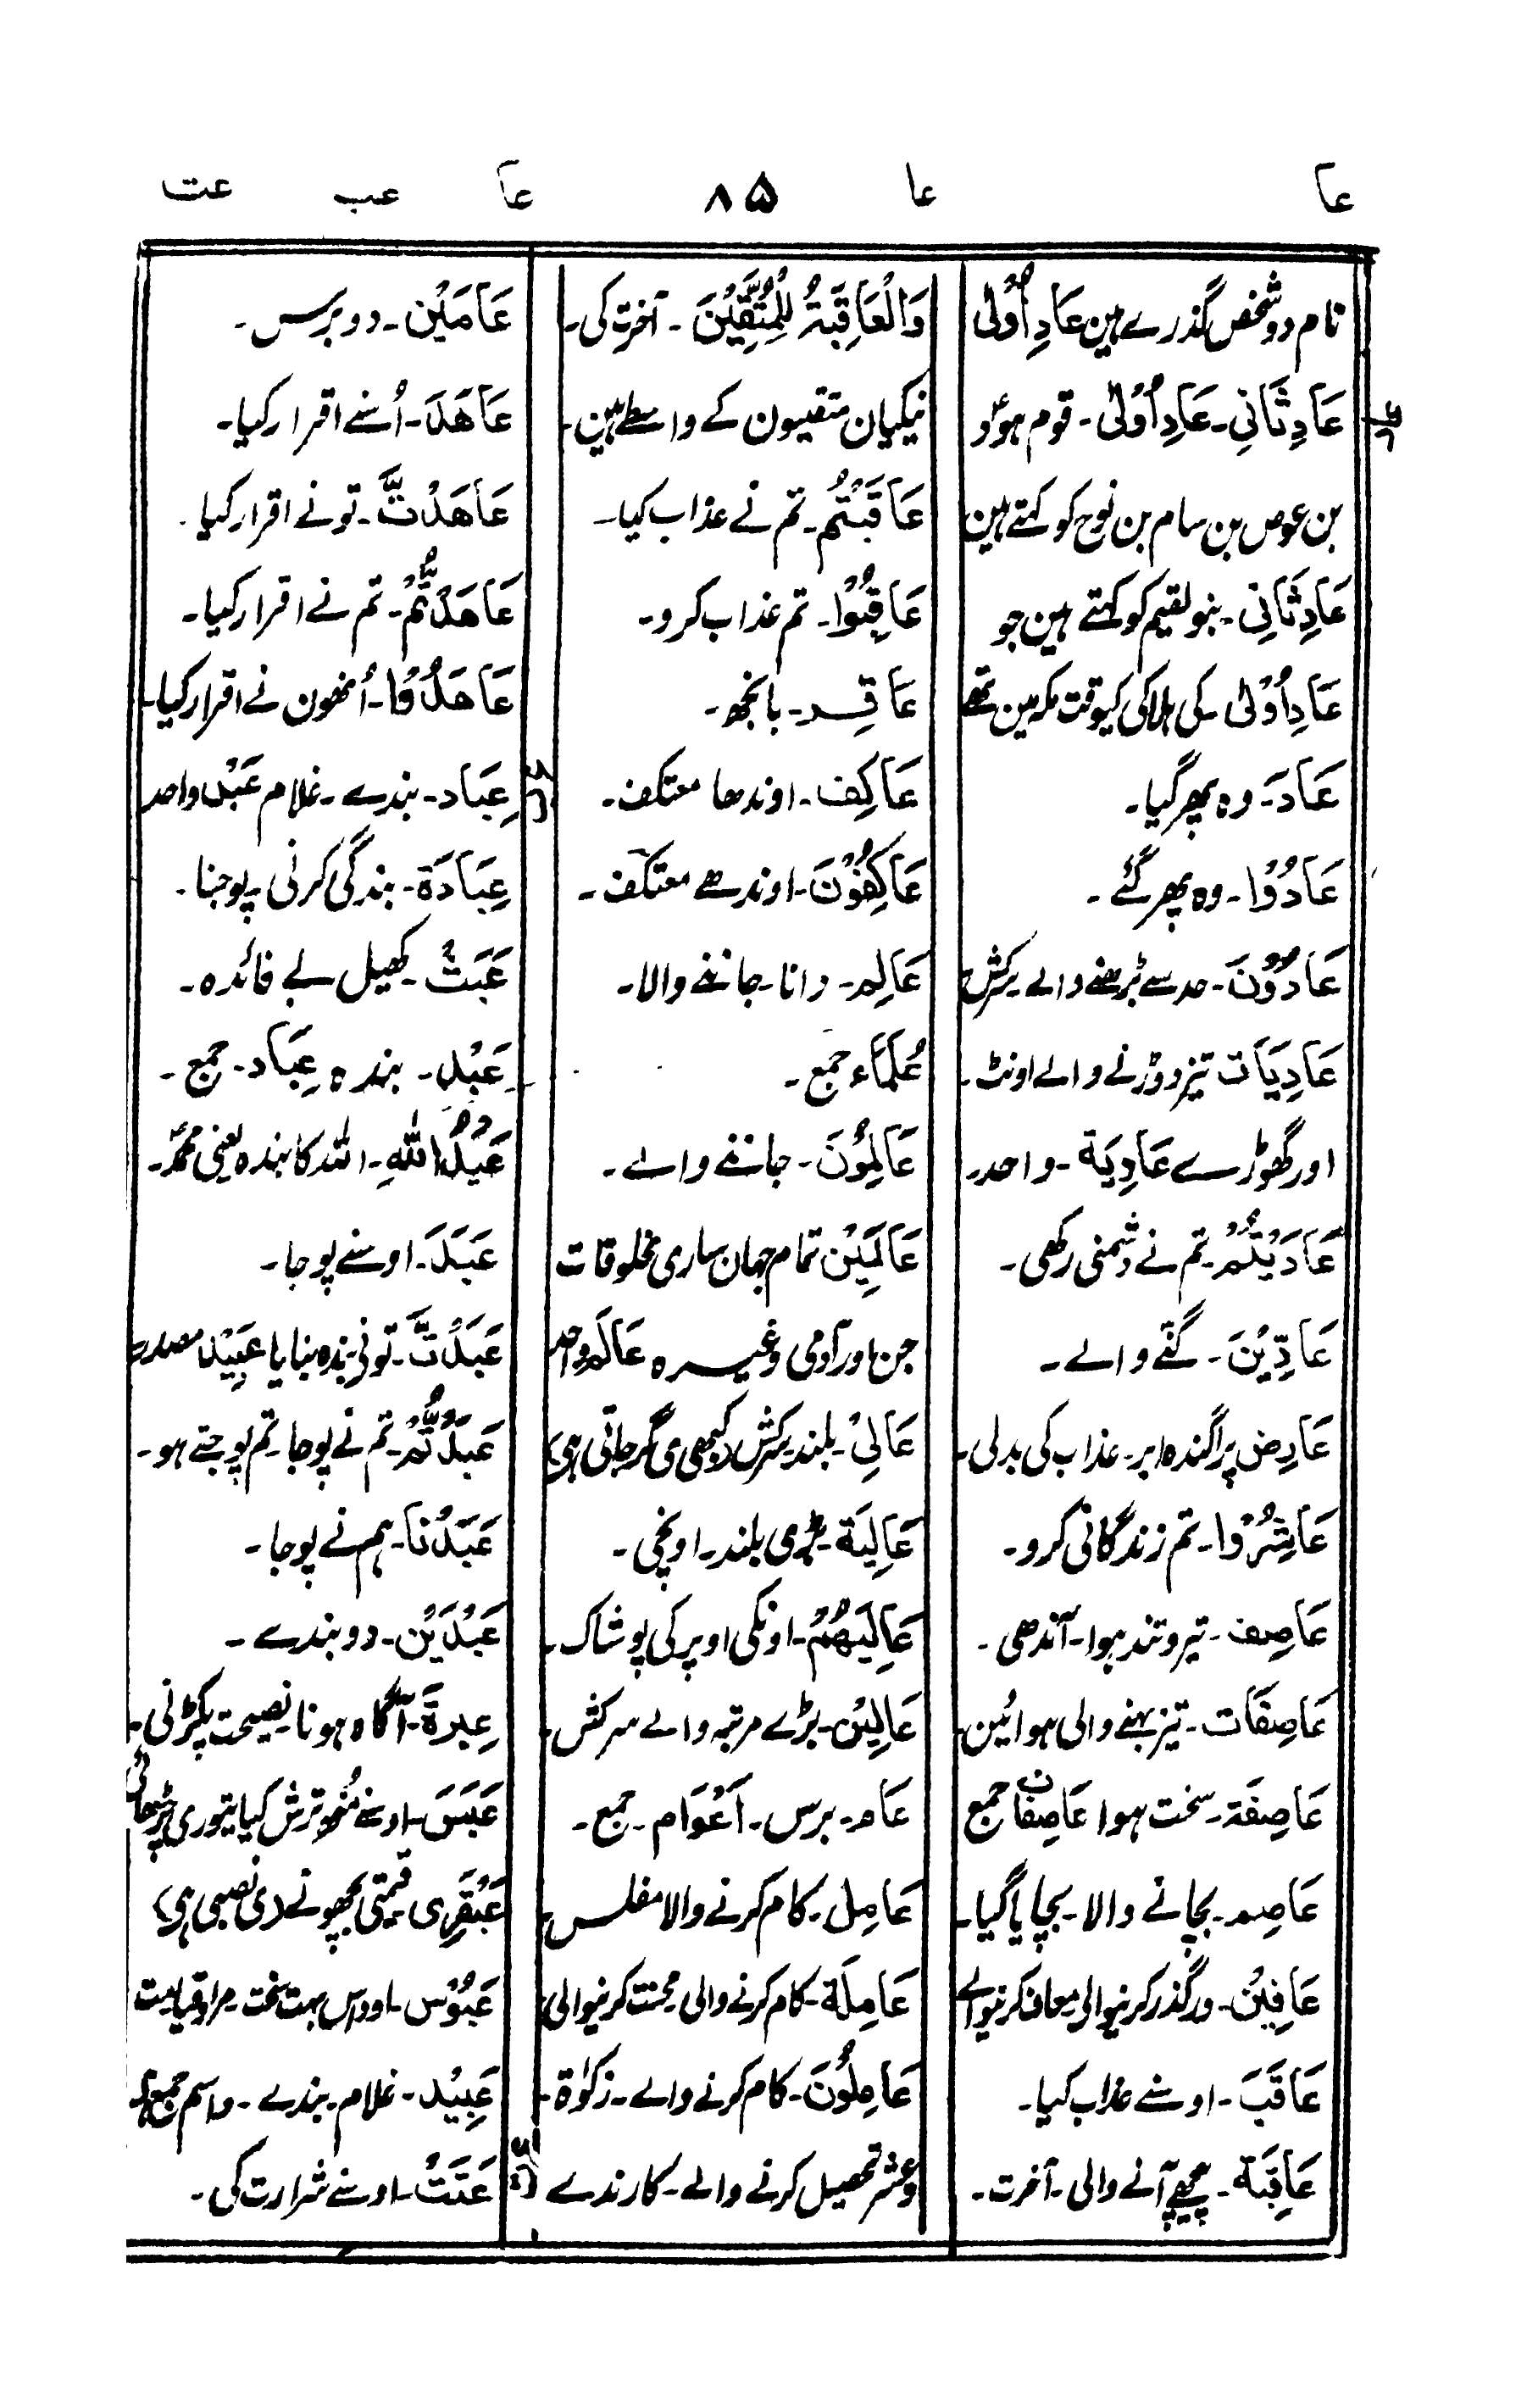 عا عا ۸۵ عا عب عت
نام دو شخص گذرے ہین عَادِ اُوْلٰی
عَادِ ثَانِی۔ عَادِ اُوْلٰی۔ قوم ہود
بن عوص بن سام بن نوح کو کہتے ہین
عَادِ ثَانِی۔ بنو لقیم کو کہتے ہین جو
عَادِ اُوْلٰی۔ کی ہلاکی کیوقت مکہ مین تھے
عَادَ۔ وہ پھر گیا۔
عَادُوْا۔ وہ پھر گئے۔
عَادُوْنَ۔ حد سے بڑھنے والے سرکش
عَادِیَات تیز دوڑنے والے اونٹ۔
اور گھوڑے عَادِیَة۔ واحد۔
عَادَیْتُمْ۔ تم نے دشمنی رکھی۔
عَادِّیْنَ۔ گننے والے۔
عَارِض پراگندہ ابر۔ عذاب کی بدلی۔
عَاشِرُوْا۔ تم زندگانی کرو۔
عَاصِف۔ تیز و تند ہوا۔ آندھی۔
عَاصِفَات۔ تیز بہنے والی ہوائین۔
عَاصِفَة۔ سخت ہوا عَاصِفَات جمع
عَاصِم۔ بچانے والا۔ بچایا گیا۔
عَافِیْن۔ درگذر کرنیوالی معاف کرنیوالے
عَاقَبَ۔ اوسنے عذاب کیا۔
عَاقِبَة۔ پیچھے آنے والی۔ آخرت۔
وَالْعَاقِبَةُ لِلْمُتَّقِیْنَ۔ آخرت کی۔
نیکیان متقیون کے واسطے ہین۔
عَاقَبْتُمْ۔ تم نے عذاب کیا۔
عَاقِبُوْا۔ تم عذاب کرو۔
عَاقِر۔ بانجھ۔
عَاکِف۔ اوندھا معتکف۔
عَاکِفُوْنَ۔ اوندھے معتکف۔
عَالِم۔ دانا۔ جاننے والا۔
عُلَمَاء جمع۔
عَالِمُوْنَ۔ جاننے والے۔
عَالَمِیْن تمام جہان ساری مخلوقات
جن اور آدمی وغیرہ عَالَم واحد
عَالِیْ۔ بلند سرکش (کبھی ی گر جاتی ہی)
عَالِیَة۔ بڑی بلند۔ اونچی۔
عَالِیَهُمْ۔ اونکی اوپر کی پوشاک۔
عَالِیْن۔ بڑے مرتبہ والے سرکش۔
عَام۔ برس۔ اَعْوَام۔ جمع۔
عَامِل۔ کام کرنے والا مفلس
عَامِلَة۔ کام کرنے والی محنت کرنیوالی
عَامِلُوْنَ۔ کام کرنے والے۔ زکوٰة۔
وعشر تحصیل کرنے والے۔ کارندے
عَامَیْن۔ دو برس۔
عَاهَدَ۔ اُسنے اقرار کیا۔
عَاهَدْتَّ۔ تو نے اقرار کیا۔
عَاهَدْتُّمْ۔ تم نے اقرار کیا۔
عَاهَدُوْا۔ اُنھون نے اقرار کیا۔
عِبَاد۔ بندے۔ غلام عَبْد واحد
عِبَادَة۔ بندگی کرنی۔ پوجنا۔
عَبَثْ۔ کھیل بے فائدہ۔
عَبْد۔ بندہ عِبَاد۔ جمع۔
عَبْدُ اللّٰهِ۔ اللہ کا بندہ یعنی محمدؐ۔
عَبَدَ۔ اوسنے پوجا۔
عَبَّدْتَّ۔ تونی بندہ بنایا عَبِیْد مصدر
عَبَدْتُّمْ۔ تم نے پوجا۔ تم پوجتے ہو۔
عَبَدْنَا۔ ہم نے پوجا۔
عَبْدَیْن۔ دو بندے۔
عِبرة۔ آگاہ ہونا نصیحت پکڑنی۔
عَبَسَ۔ اوسنے مُنھ ترش کیا تیوری چڑھائی
عَبْقَرِی قیمتی بچھونے (ی نصبی ہی)
عَبُوْس۔ اوداس بہت سخت۔ مراد قیامت
عَبِیْد۔ غلام۔ بندے۔ اسم جمع
عَتَتْ۔ اوسنے شرارت کی۔